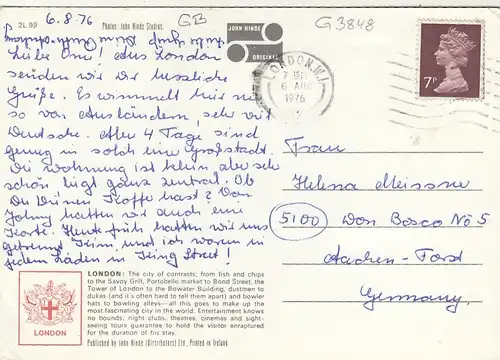 2L 99
6.8.76
Photos: John Hinde Studios.
GB
G3848
JOHN HINDE
ORIGINAL
LONDON W.1
6 AUG
1976
7P
Liebe Omi! Aus London
senden wir Dir herzliche
Grüße. Es wimmelt hier nur
so von Ausländern, sehr viel
Deutsche. Aber 4 Tage sind
genug in solch eine Großstadt.
Die Wohnung ist klein aber sehr
schön, liegt ganz zentral. Ob
Du Deinen Koffer hast? Von
Johny hatten wir auch eine
Karte. Heute früh hatten wir uns
getrennt, Teimi und ich waren in
jedem Laden in
Street!
Frau
Helena Meissner
5100 Don Bosco No 5
Aachen-Forst
Germany.
LONDON
LONDON: The city of contrasts; from fish and chips
to the Savoy Grill, Portobello market to Bond Street, the
Tower of London to the Bowater Building, dustmen to
dukes (and it's often hard to tell them apart) and bowler
hats to bowling alleys—all this goes to make up the
most fascinating city in the world. Entertainment knows
no bounds; night clubs, theatres, cinemas and sight-
seeing tours guarantee to hold the visitor enraptured
for the duration of his stay.
Published by John Hinde (Distributors) Ltd., Printed in Ireland